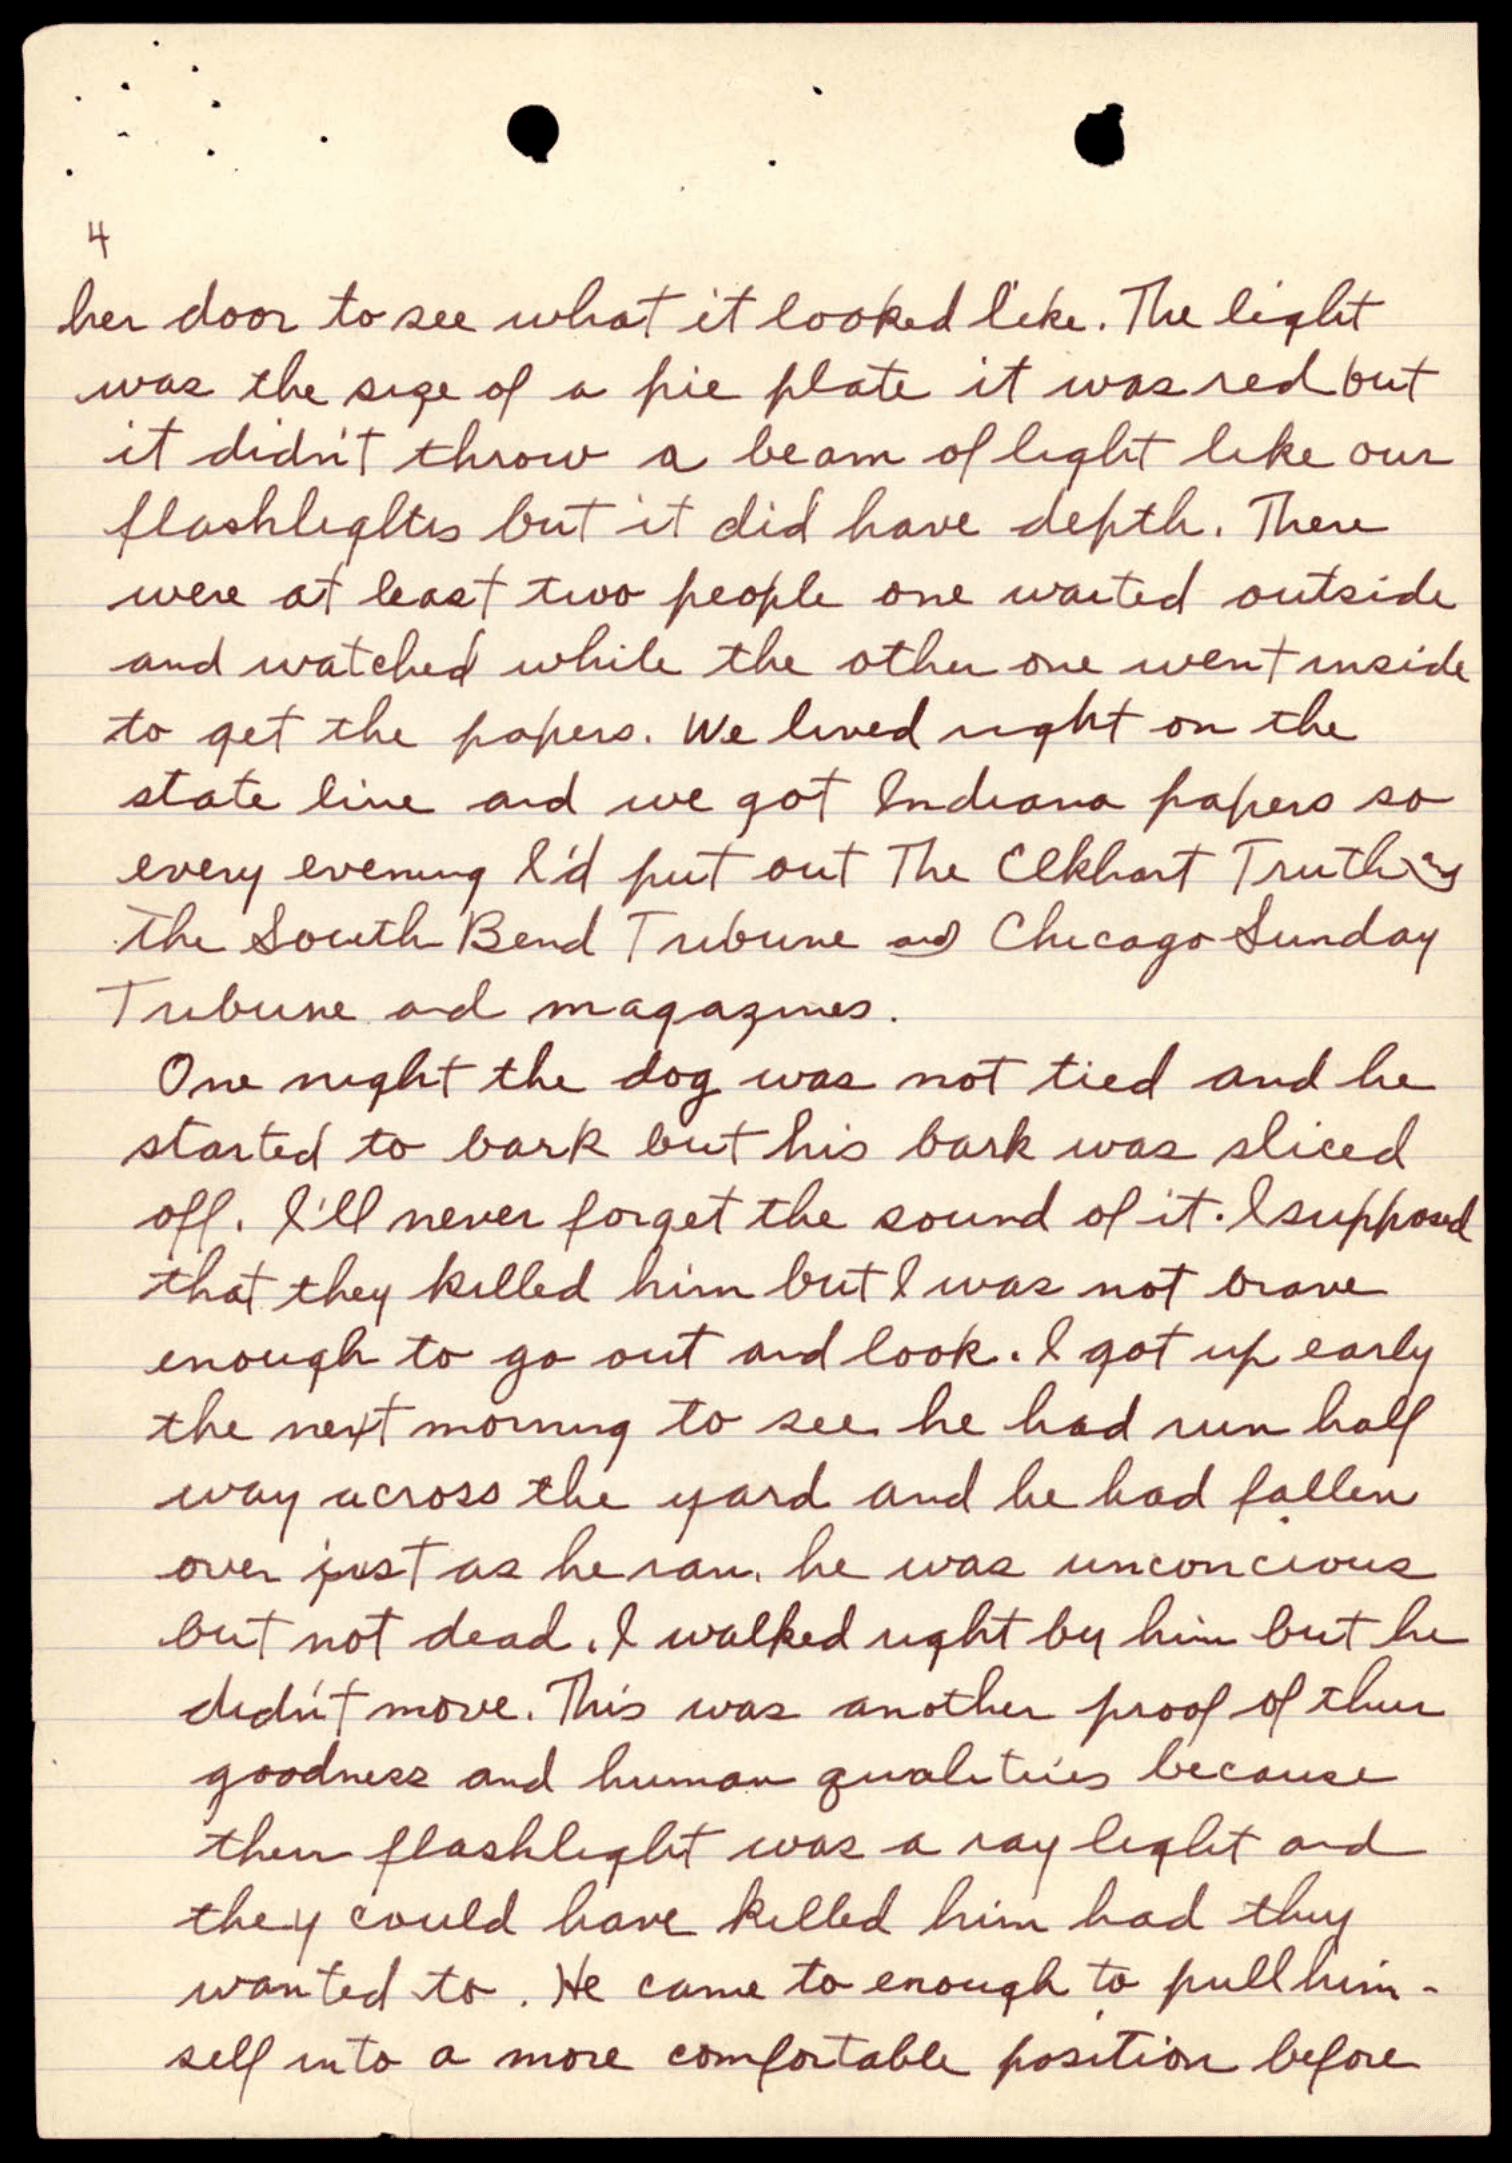 4
her door to see what it looked like. The light
was the size of a pie plate it was red but
it didn't throw a beam of light like our
flashlights but it did have depth. There
were at least two people one waited outside
and watched while the other one went inside
to get the papers. We lived right on the
state line and we got Indiana papers so
every evening I'd put out The Elkhart Truth
The South Bend Tribune and Chicago Sunday
Tribune and magazines.
One night the dog was not tied and he
started to bark but his bark was sliced
off. I'll never forget the sound of it. I supposed
that they killed him but I was not brave
enough to go out and look. I got up early
the next morning to see he had run half
way across the yard and he had fallen
over just as he ran. he was unconcious
but not dead. I walked right by him but he
didn't move. This was another proof of their
goodness and human qualities because
their flashlight was a ray light and
they could have killed him had they
wanted to. He came to enough to pull him-
self into a more comfortable position before